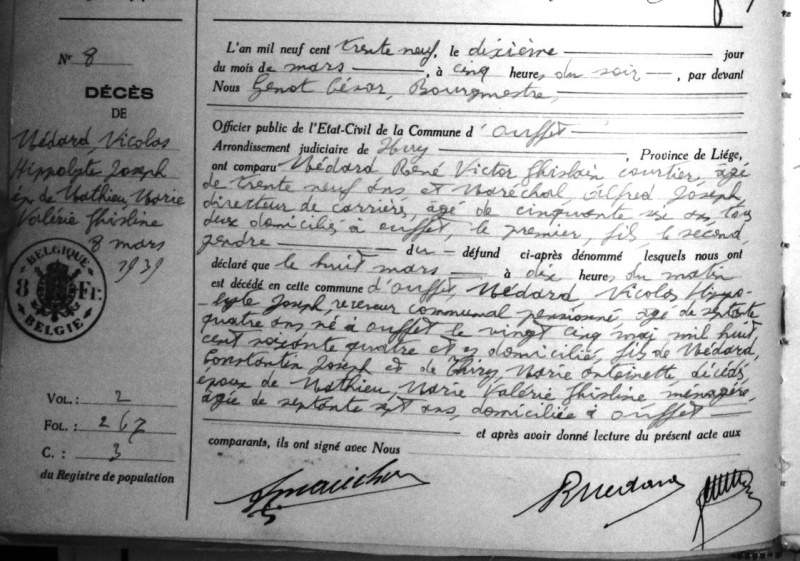 N° 8
DÉCÈS
DE
Médard Nicolas
Hippolyte Joseph
ép de Mathieu Marie
Valérie Ghisline
8 mars
1939
BELGIQUE
8 Fr.
BELGIE
VOL.: 2
FOL.: 267
C.: 3
du Registre de population
L'an mil neuf cent trente neuf, le dixième jour
du mois de mars, à cinq heures du soir, par devant
Nous Genot César, Bourgmestre,
Officier public de l'Etat-Civil de la Commune d'Ouffet
Arrondissement judiciaire de Huy, Province de Liége,
ont comparu Médard, René Victor Ghislain courtier, âgé
de trente neuf ans et Maréchal Alfred Joseph,
directeur de carrière, âgé de cinquante six ans, tous
deux domiciliés à Ouffet, le premier, fils, le second,
gendre du défund ci-après dénommé lesquels nous ont
déclaré que le huit mars à dix heures du matin
est décédé en cette commune d'Ouffet, Médard, Nicolas Hippo-
lyte Joseph, receveur communal pensionné, âgé de septante
quatre ans, né à Ouffet le vingt cinq mai mil huit
cent soixante quatre et y domicilié, fils de Médard,
Constantin Joseph et de Thiry, Marie Antoinette, décédés
époux de Mathieu, Marie Valérie Ghisline, ménagère,
âgée de septante sept ans, domiciliée à Ouffet
et après avoir donné lecture du présent acte aux
comparants, ils ont signé avec Nous
RMedard